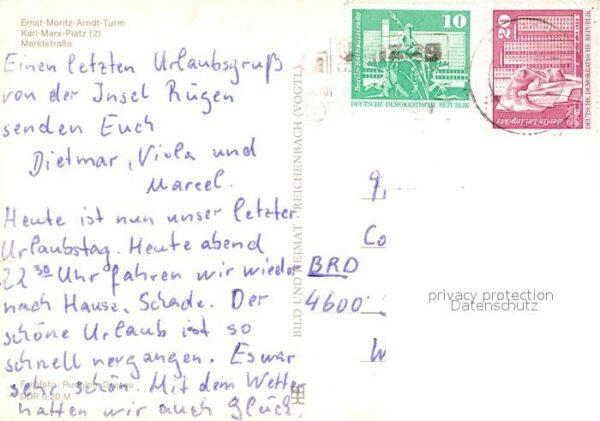 Ernst-Moritz-Arndt-Turm
Karl-Marx-Platz (2)
Marktstraße
Einen letzten Urlaubsgruß
von der Insel Rügen
senden Euch
Dietmar, Viola und
Marcel.
Heute ist nun unser letzter
Urlaubstag. Heute abend
22 30 Uhr fahren wir wieder
nach Hause. Schade. Der
schöne Urlaub ist so
schnell vergangen. Es war
sehr schön. Mit dem Wetter
hatten wir auch Glück.
Farbfoto:
DDR 0,20 M
BILD UND HEIMAT REICHENBACH (VOGTL)
10
Berlin, Rathausstraße
DEUTSCHE DEMOKRATISCHE REPUBLIK
20
Berlin Leninplatz
DEUTSCHE DEMOKRATISCHE REPUBLIK
BRD
4600
privacy protection
Datenschutz